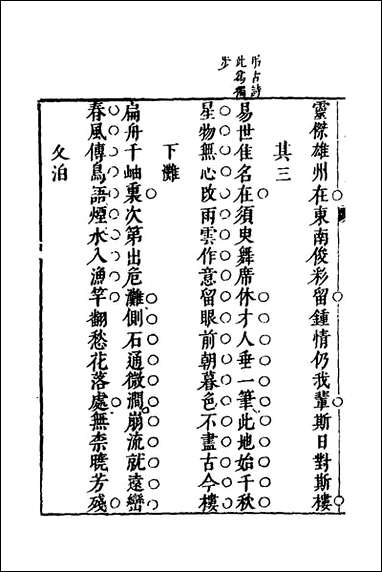 弔古詩
此為獨
步
靈傑雄州在東南俊彩留鍾情仍我輩斯日對斯樓
其三
易世佳名在須臾舞席休才人垂一筆此地始千秋
星物無心改雨雲作意留眼前朝暮色不盡古今樓
下灘
扁舟千岫裏次第出危灘側石通微澗崩流就遠巒
春風傳鳥語煙水入漁竿翻愁花落處無柰曉芳殘
久泊